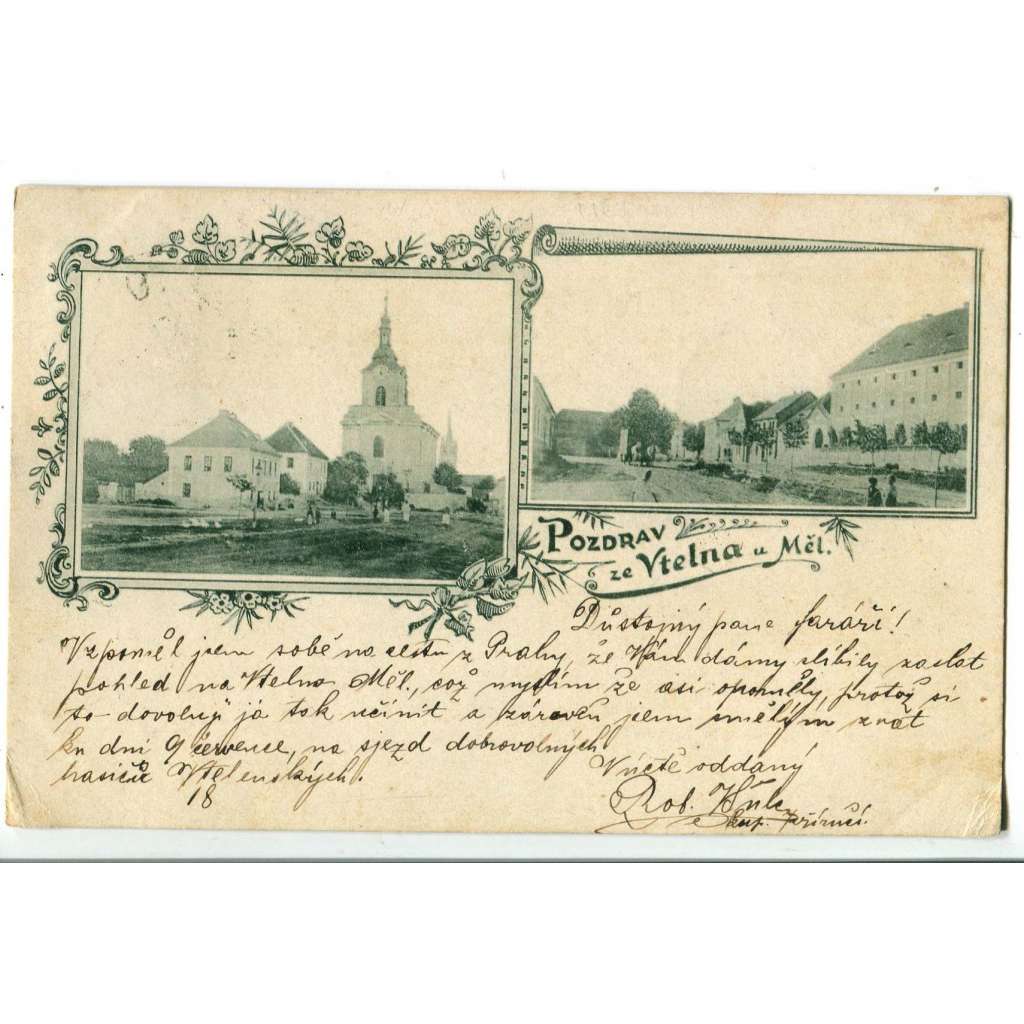 POZDRAV
ze Vtelna u Měl.
Důstojný pane faráři!
Vzpoměl jsem sobě na cestu z Prahy, že Vám dámy slíbily zaslat
pohled na Vtelno Měl., což myslím že asi opoměly, protož si
to dovoluji já tak učinit a zároveň jsem smělým zvát
ku dni 9 července, na sjezd dobrovolných
hasičů Vtelenských.
V úctě oddaný
18
Rob.